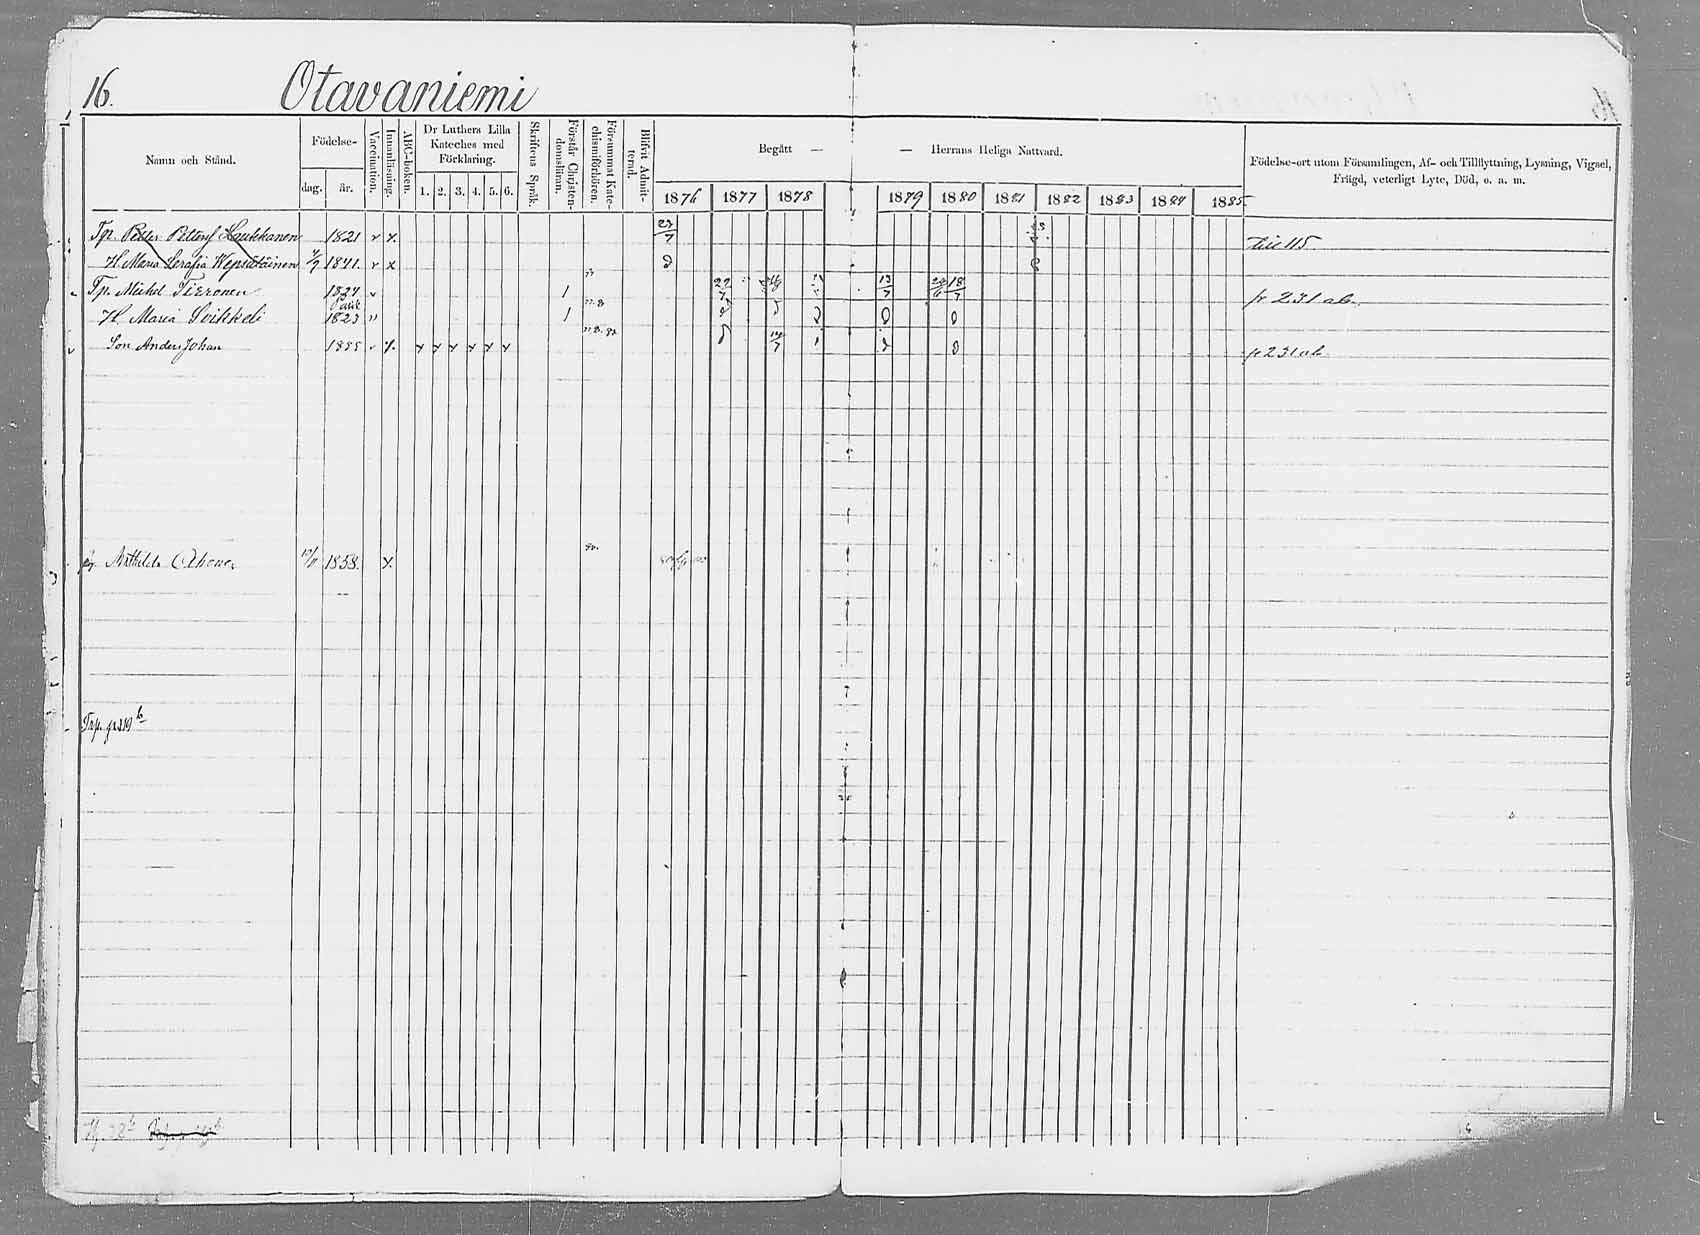 16. Otavaniemi
Namn och Stånd.
Födelse-
dag.
år.
Vaccination.
Innanläsning.
ABC-boken.
Dr Luthers Lilla
Kateches med
Förklaring.
1. 2. 3. 4. 5. 6.
Skriftens Språk.
Förstår Christen-
domsläran.
Försummat Kate-
chismiförhören.
Blifvit Admit-
terad.
Begått — — Herrans Heliga Nattvard.
1876 1877 1878 1879 1880 1881 1882 1883 1884 1885
Födelse-ort utom Församlingen, Af- och Tillflyttning, Lysning, Vigsel,
Frägd, veterligt Lyte, Död, o. a. m.
Tp. Petter Petterss Laukkanen 1821 23/7 till 115
H. Maria Serafia Wepsäläinen 1841.
Tp. Mickel 1827 22/7 13/7 18/7 fr 231 ab.
H. Maria Soikkeli 1823
Son Anders Johan 1855 fr 231 ab
Mathilda Ahonen 1858.